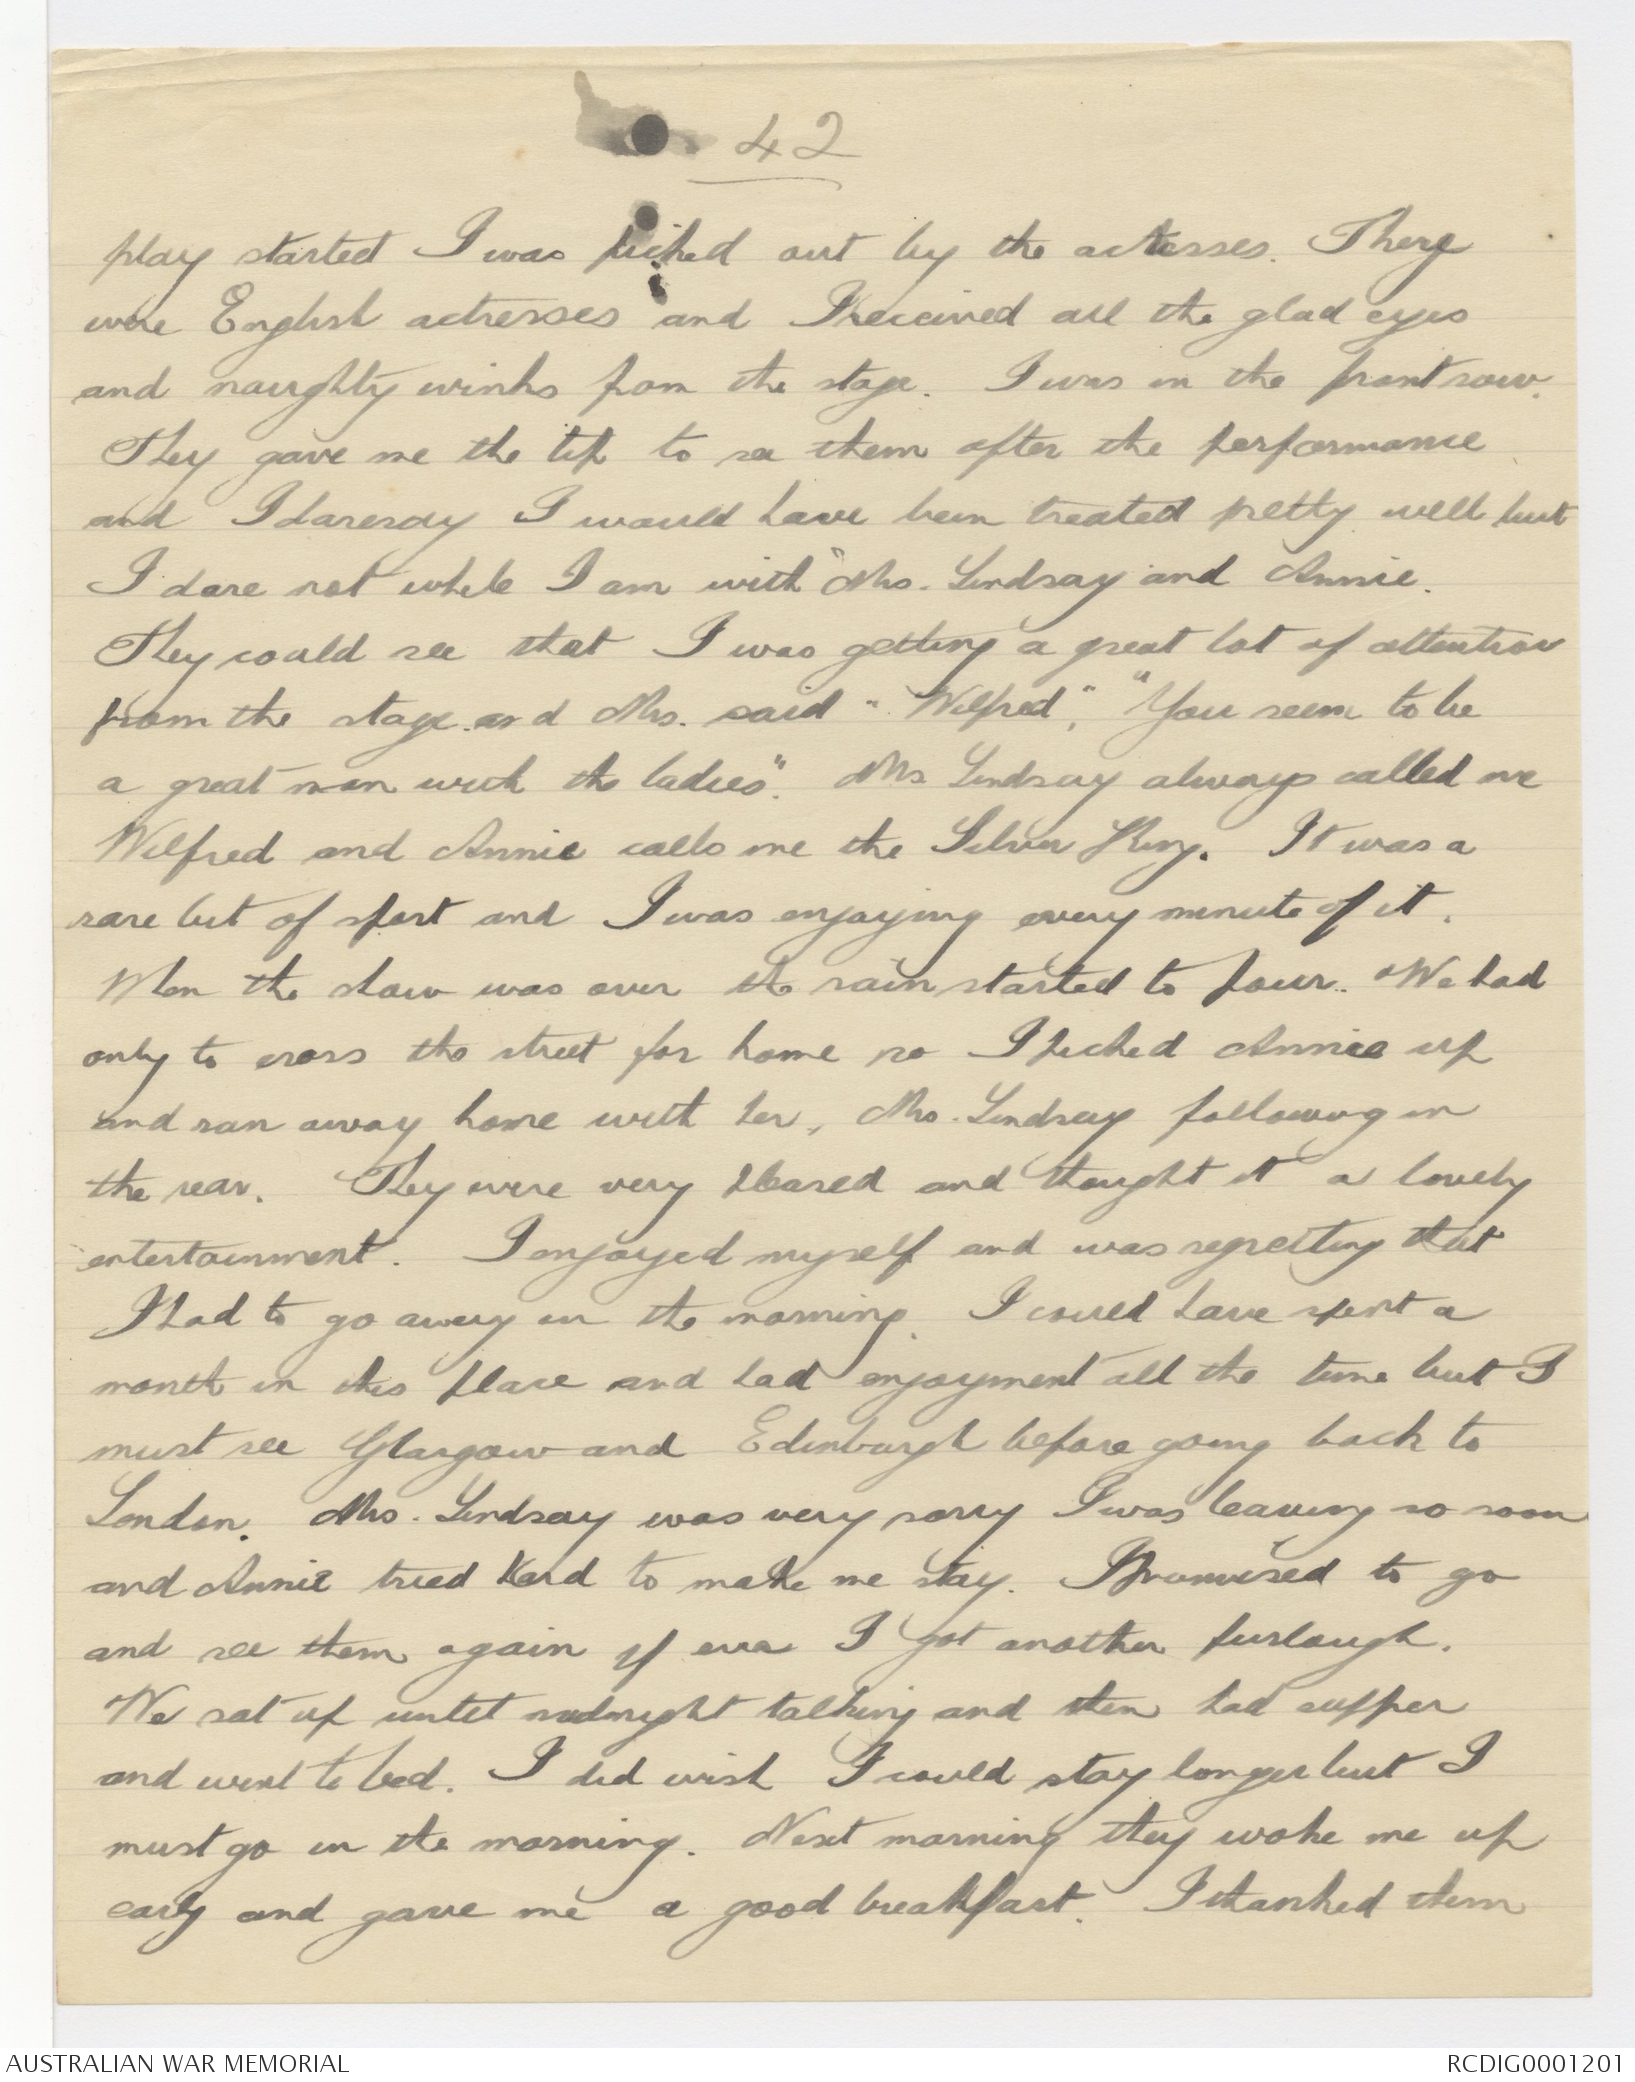 42
play started I was picked out by the actresses. They
were English actresses and I received all the glad eyes
and naughty winks from the stage. I was in the front row.
They gave me the tip to see them after the performance
and I daresay I would have been treated pretty well but
I dare not while I am with Mrs. Lindsay and Annie.
They could see that I was getting a great lot of attention
from the stage and Mrs. said "Wilfred", "You seem to be
a great man with the ladies". Mrs Lindsay always called me
Wilfred and Annie calls me the Silver King. It was a
rare bit of sport and I was enjoying every minute of it.
When the show was over the rain started to pour. We had
only to cross the street for home so I picked Annie up
and ran away home with her, Mrs. Lindsay following in
the rear. They were very pleased and thought it a lovely
entertainment. I enjoyed myself and was regretting that
I had to go away in the morning. I could have spent a
month in this place and had enjoyment all the time but I
must see Glasgow and Edinburgh before going back to
London. Mrs. Lindsay was very sorry I was leaving so soon
and Annie tried hard to make me stay. I promised to go
and see them again if ever I got another furlough.
We sat up until midnight talking and then had supper
and went to bed. I did wish I could stay longer but I
must go in the morning. Next morning they woke me up
early and gave me a good breakfast. I thanked them
AUSTRALIAN WAR MEMORIAL
RCDIG0001201